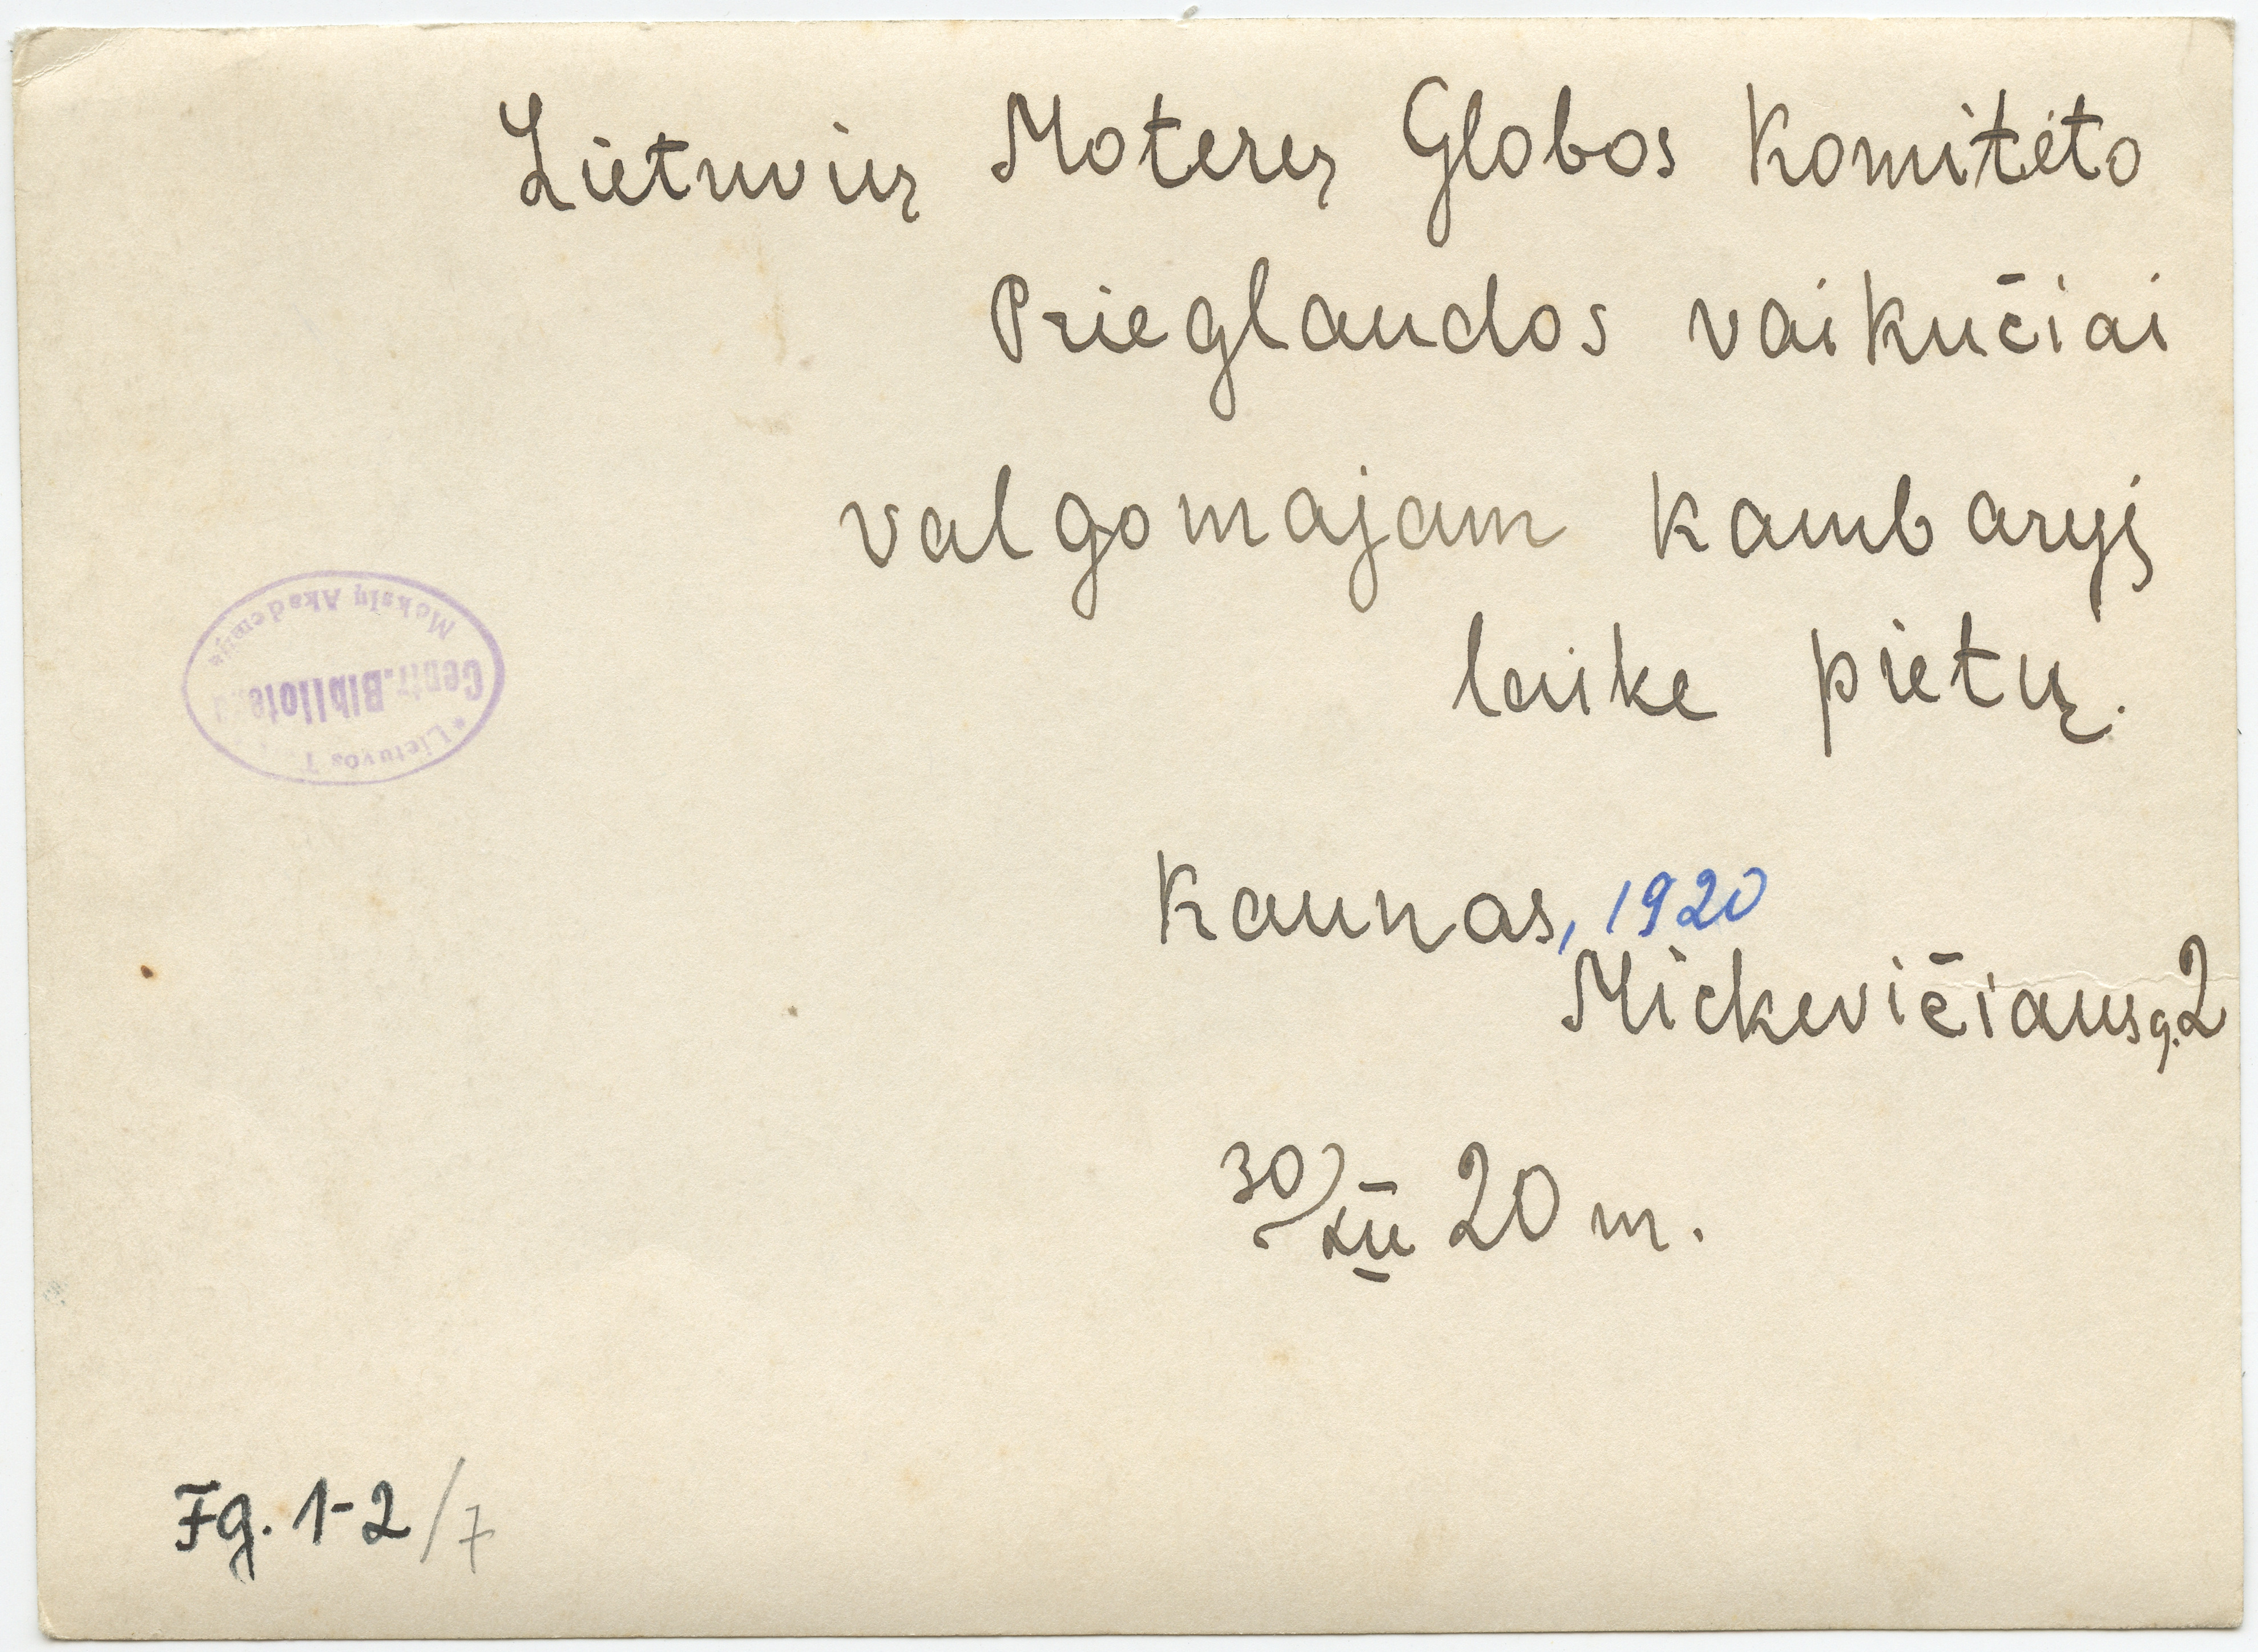 Lietuvių Moterų Globos Komitėto
Prieglaudos vaikučiai
valgomajam kambaryį
laike pietų.
Kaunas, 1920
Mickevičiaus g. 2
30/XII 20 m.
Lietuvos T
Centr. Bibliote
Mokslų Akademija
Fg. 1-2/7